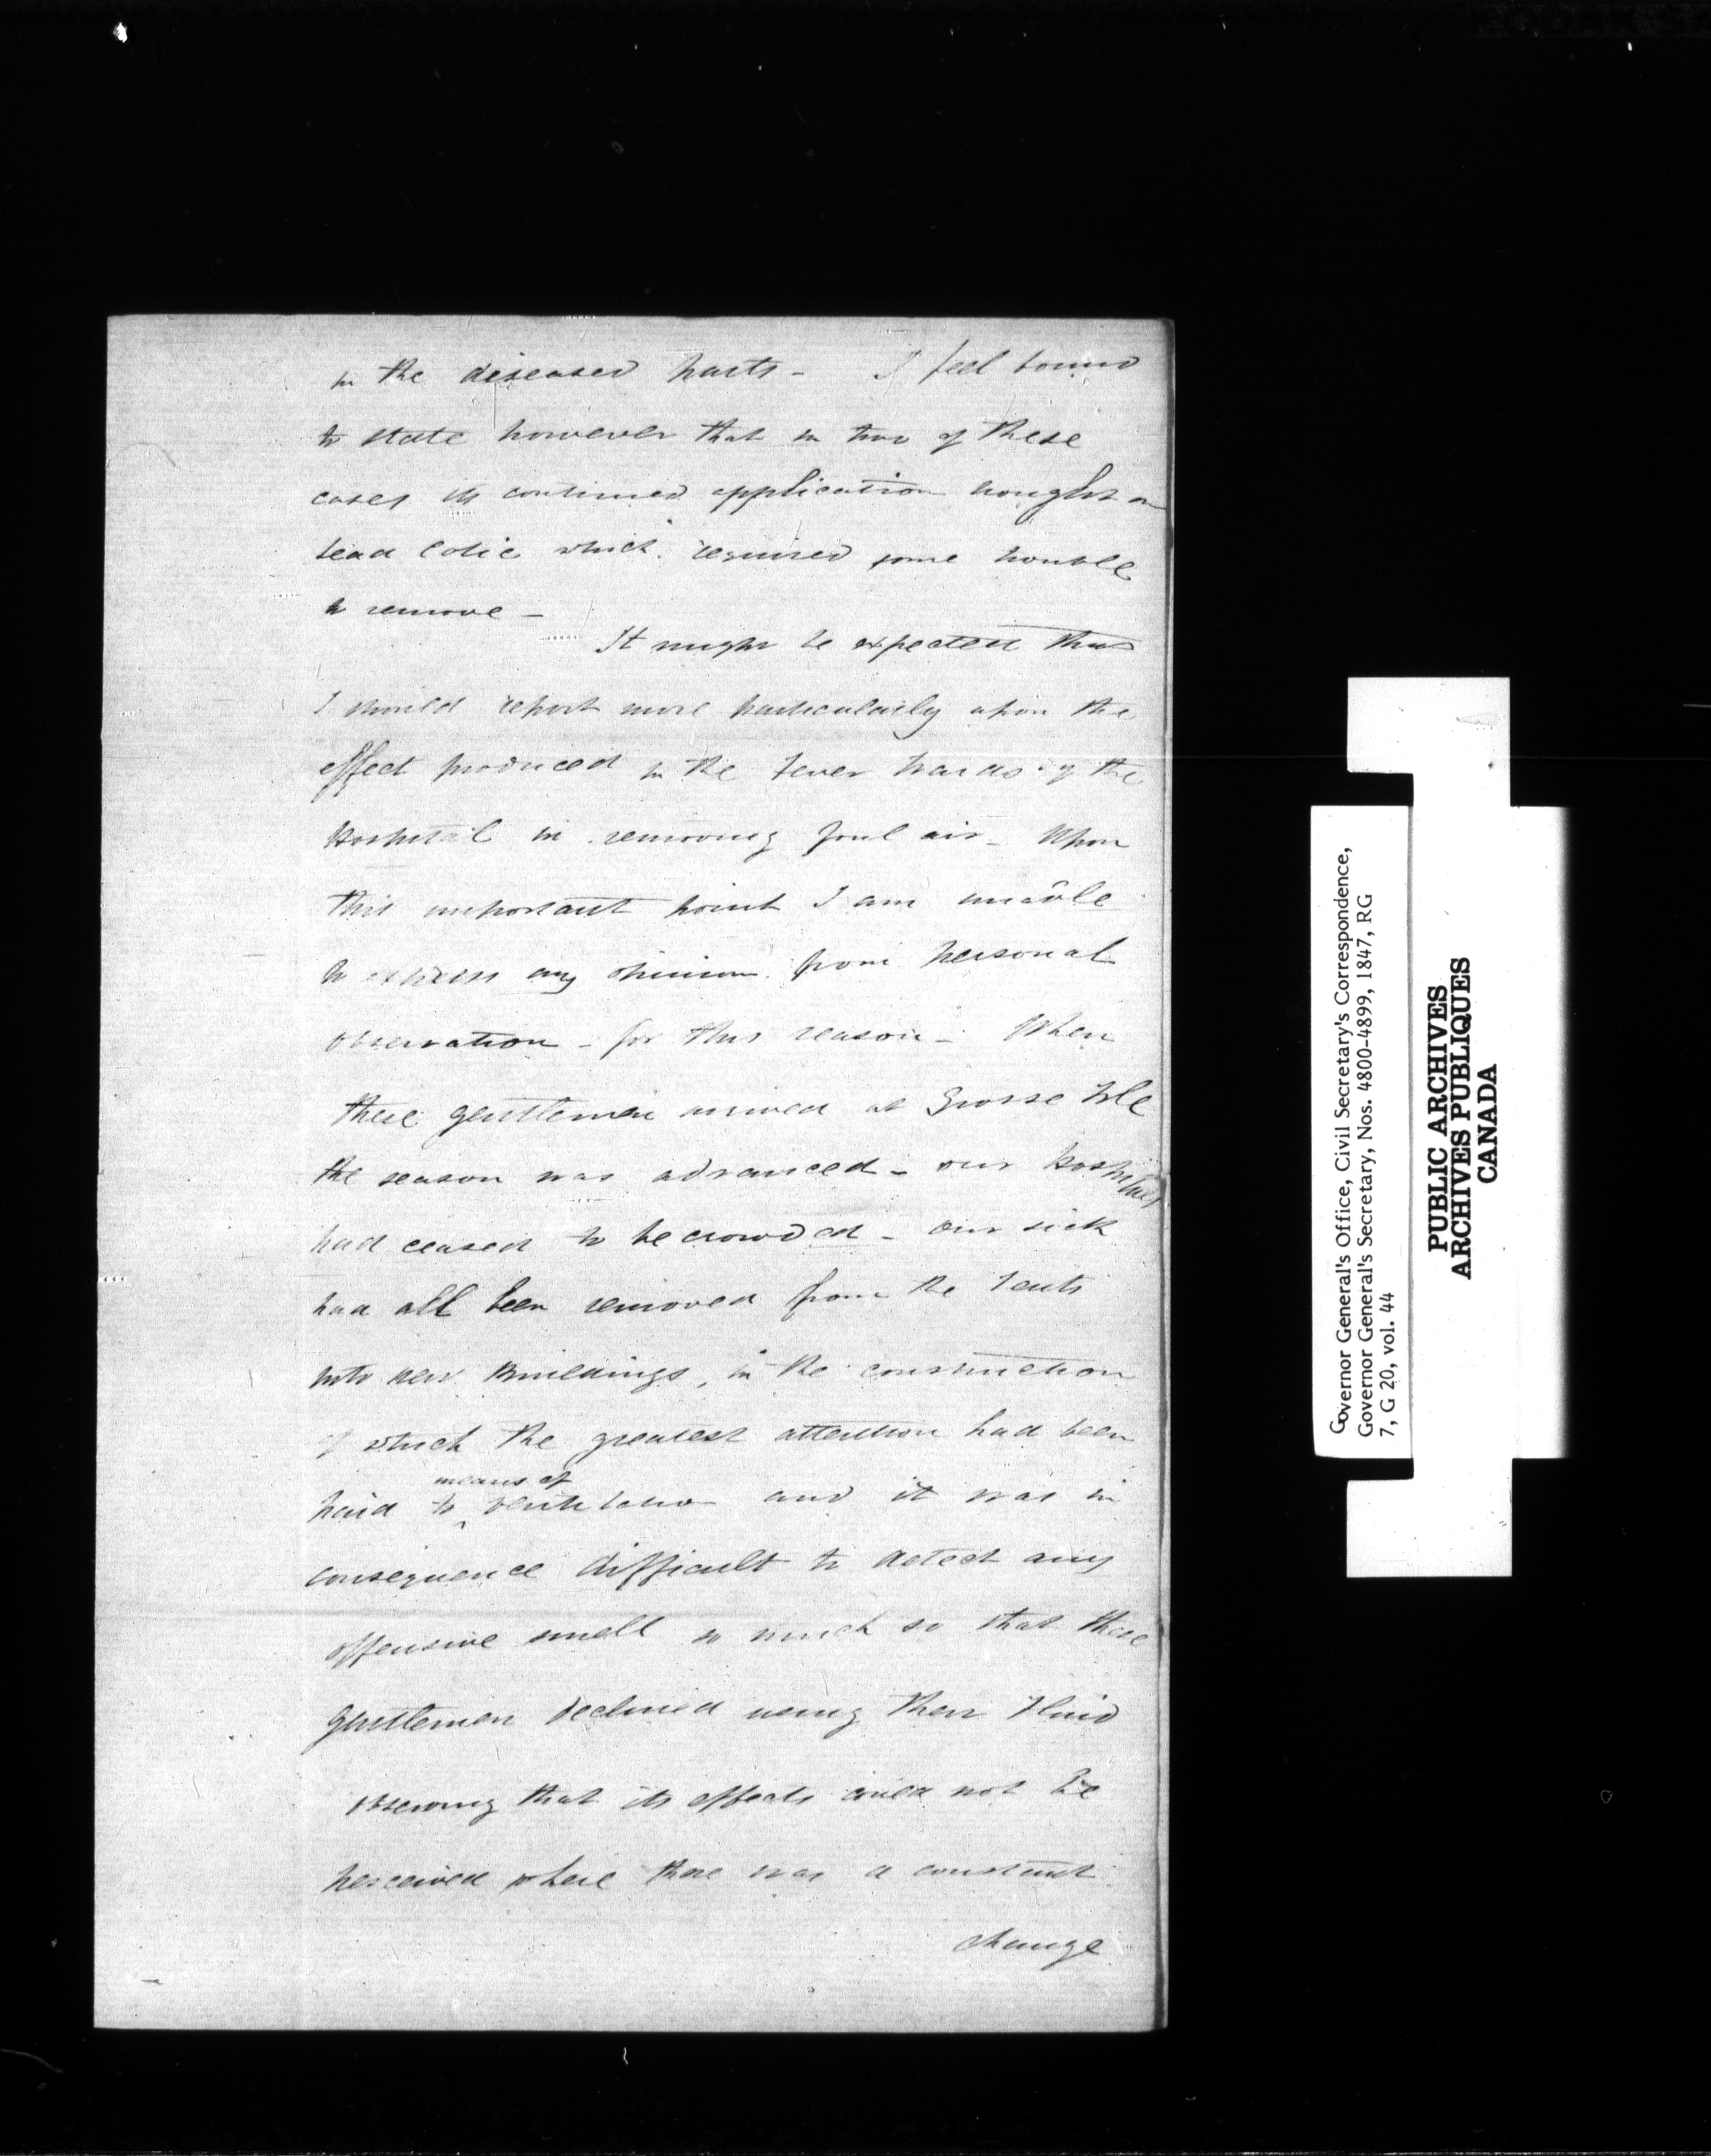 in the diseased parts - I feel bound
to state however that in two of these
cases its continued application brought on
lead colic which required some trouble
to remove -
It might be expected that
I should report more particularly upon the
effect produced in the Fever Wards of the
Hospital in removing foul air - Upon
this important point I am unable
to express any opinion from personal
observation - for this reason - When
these gentlemen arrived at Grosse Isle
the season was advanced - our Hospitals
had ceased to be crowded - our sick
had all been removed from the Tents
into new Buildings, in the construction
of which the greatest attention had been
means of
paid to ^ ventilation and it was in
consequence difficult to detect any
offensive smell so much so that these
gentlemen declined using their Fluid
observing that its effects could not be
perceived where there was a constant
change
Governor General's Office, Civil Secretary's Correspondence,
Governor General's Secretary, Nos. 4800-4899, 1847, RG
7, G 20, vol. 44
PUBLIC ARCHIVES
ARCHIVES PUBLIQUES
CANADA